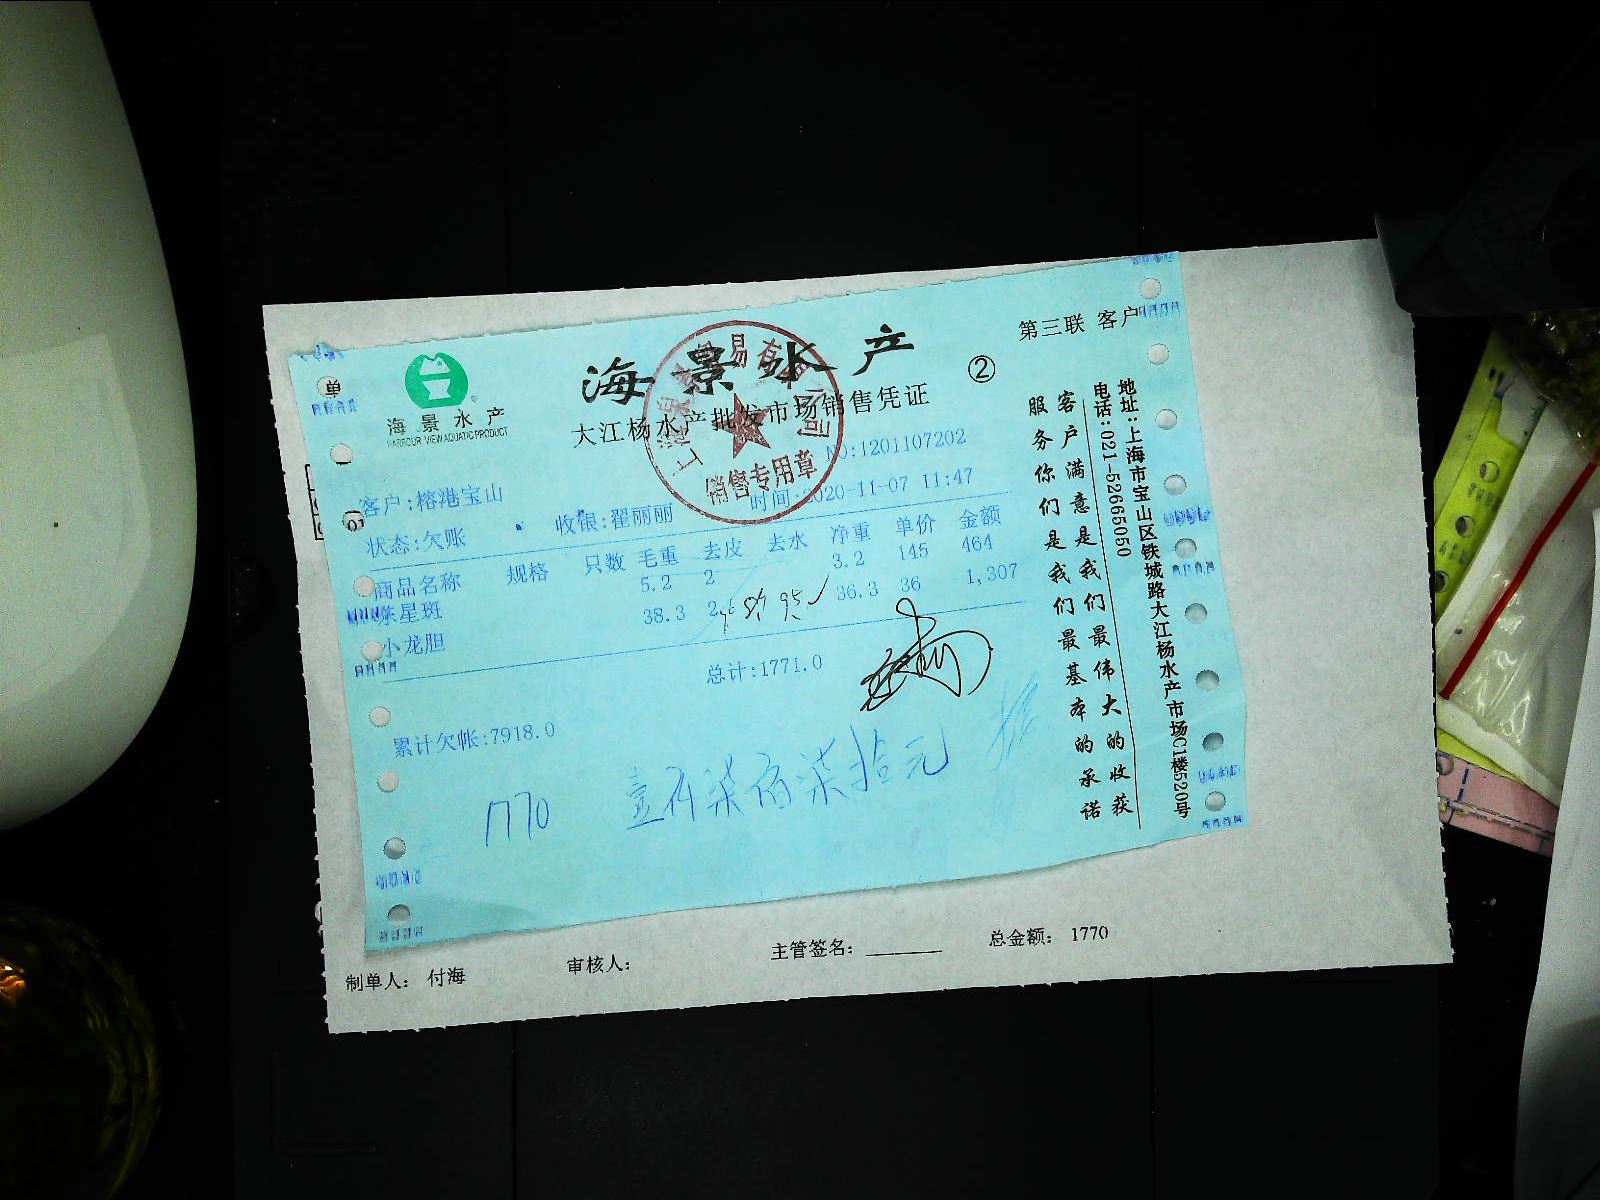 第三联 客户
单
海景水产
HARBOUR VIEW AQUATIC PRODUCT
海景水产
②
大江杨水产批发市场销售凭证
销售专用章
NO:1201107202
客户:榕港宝山
时间:2020-11-07 11:47
状态:欠账
收银:翟丽丽
商品名称 规格 只数 毛重 去皮 去水 净重 单价 金额
东星斑 5.2 2 3.2 145 464
小龙胆 38.3 2 36.3 36 1,307
总计:1771.0
累计欠帐:7918.0
1770
壹仟柒佰柒拾元
客户满意是我们最伟大的收获
服务你们是我们最基本的承诺
地址:上海市宝山区铁城路大江杨水产市场C1楼520号
电话:021-52665050
制单人: 付海
审核人:
主管签名:
总金额: 1770